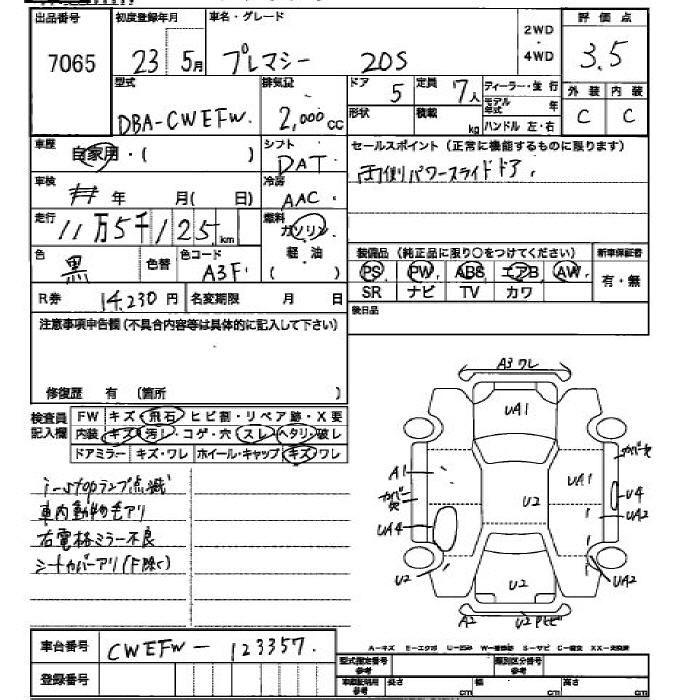 出品番号 初度登録年月 車名・グレード 2WD ・ 4WD 評価点
7065 23 5月 プレマシー 20S 3.5
型式 排気量 ドア 定員 ディーラー・並行 外装 内装
DBA-CWEFW. 2,000cc 5 7人 モデル年式 年 C C
形状 積載 kg ハンドル 左・右
車歴 自家用・( ) シフト DAT セールスポイント (正常に機能するものに限ります)
車検 年 月( 日) 冷房 AAC 両側パワースライドドア.
走行 11万5千125.km 燃料 ガソリン 軽油 ( )
色 黒 色替 色コード A3F 装備品 (純正品に限り○をつけてください) 新車保証書
PS PW ABS エアB AW 有・無
SR ナビ TV カワ
R券 14,230円 名変期限 月 日 後日品
注意事項申告欄 (不具合内容等は具体的に記入して下さい)
修復歴 有 (箇所 )
検査員記入欄 FW キズ・飛石・ヒビ割・リペア跡・X要
内装 キズ・汚し・コゲ・穴・スレ・ヘタリ・破レ
ドアミラー キズ・ワレ ホイール・キャップ キズ・ワレ
i-stopランプ点滅
車内動物毛アリ
右電格ミラー不良
シートカバーアリ(F除く)
A3ワレ
UA1
カバー欠
A1 UA1
カバー欠 U4
U2 UA2
UA4
U2 U2 UA2
A2 U2 Pヒビ
車台番号 CWEFW-123357.
登録番号
型式指定番号 参考 類別区分番号 参考
長さ cm 幅 cm 高さ cm